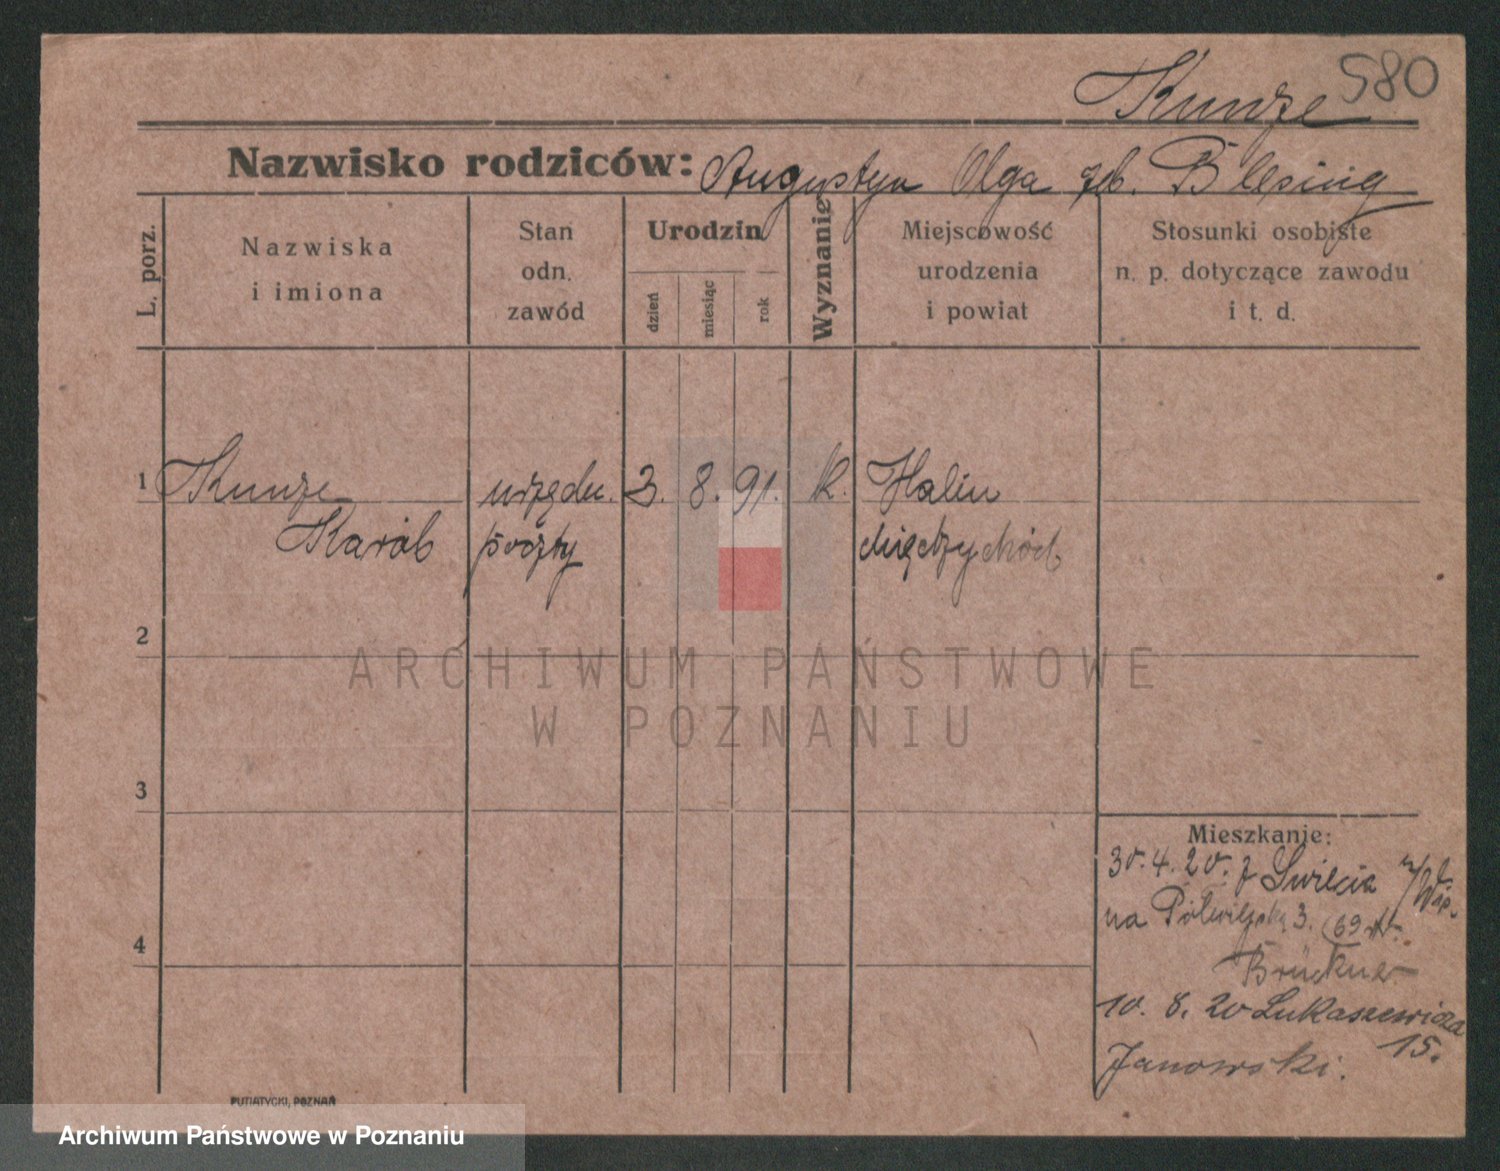 580
Kunze
Nazwisko rodziców: Augustyn Olga geb. Blesing
L. porz.
Nazwiska
i imiona
Stan
odn.
zawód
Urodzin
dzień
miesiąc
rok
Wyznanie
Miejscowość
urodzenia
i powiat
Stosunki osobiste
n. p. dotyczące zawodu
i t. d.
1 Kunze urzędn. 3. 8. 91. k. Halin
Karol poczty Międzychód
2
ARCHIWUM PAŃSTWOWE
W POZNANIU
3
Mieszkanie:
30.4.20. z Swiecia n/Wisł.
na 3. (69
Brückner
4
10. 8. 20 Łukaszewicza
15.
Janowski.
PUTIATYCKI, POZNAŃ
Archiwum Państwowe w Poznaniu